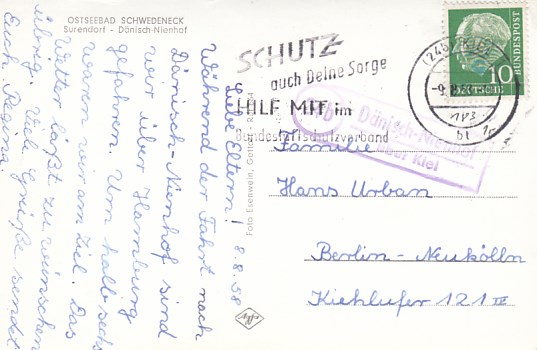 OSTSEEBAD SCHWEDENECK
Surendorf - Dänisch-Nienhof
Liebe Eltern! 8.8.58
Während der Fahrt nach
Dänisch-Nienhof sind
wir über Hamburg
gefahren. Um halb sechs
waren wir am Ziel. Das
Wetter läßt zu wünschen
übrig. Viele Grüße sendet
Euch Regina.
Foto Esenwein,
SCHUTZ
auch Deine Sorge
HILF MIT im
Bundesluftschutzverband
DEUTSCHE
BUNDESPOST
10
Dänisch-Nienhof
über Kiel
Familie
Hans Urban
Berlin-Neukölln
Kiehlufer 121 IV